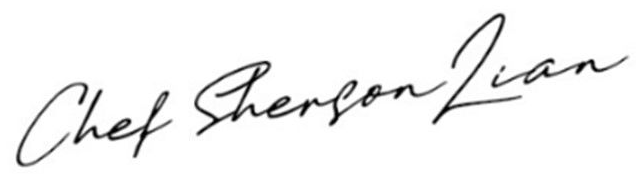 Chef Sherson Lian